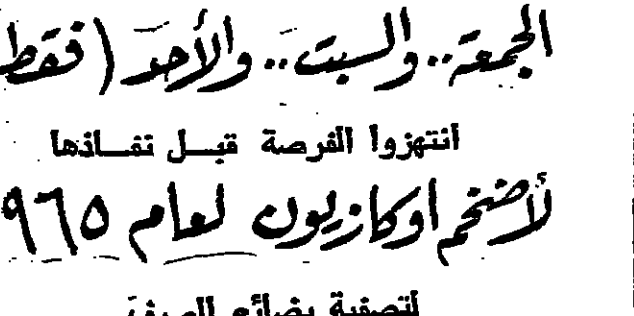 الجمعة.. والسبت.. والأحد (فقط
انتهزوا الفرصة قبل نفاذها
لأضخم اوكازيون لعام ٩٦٥
لتصفية بضائع الصيف